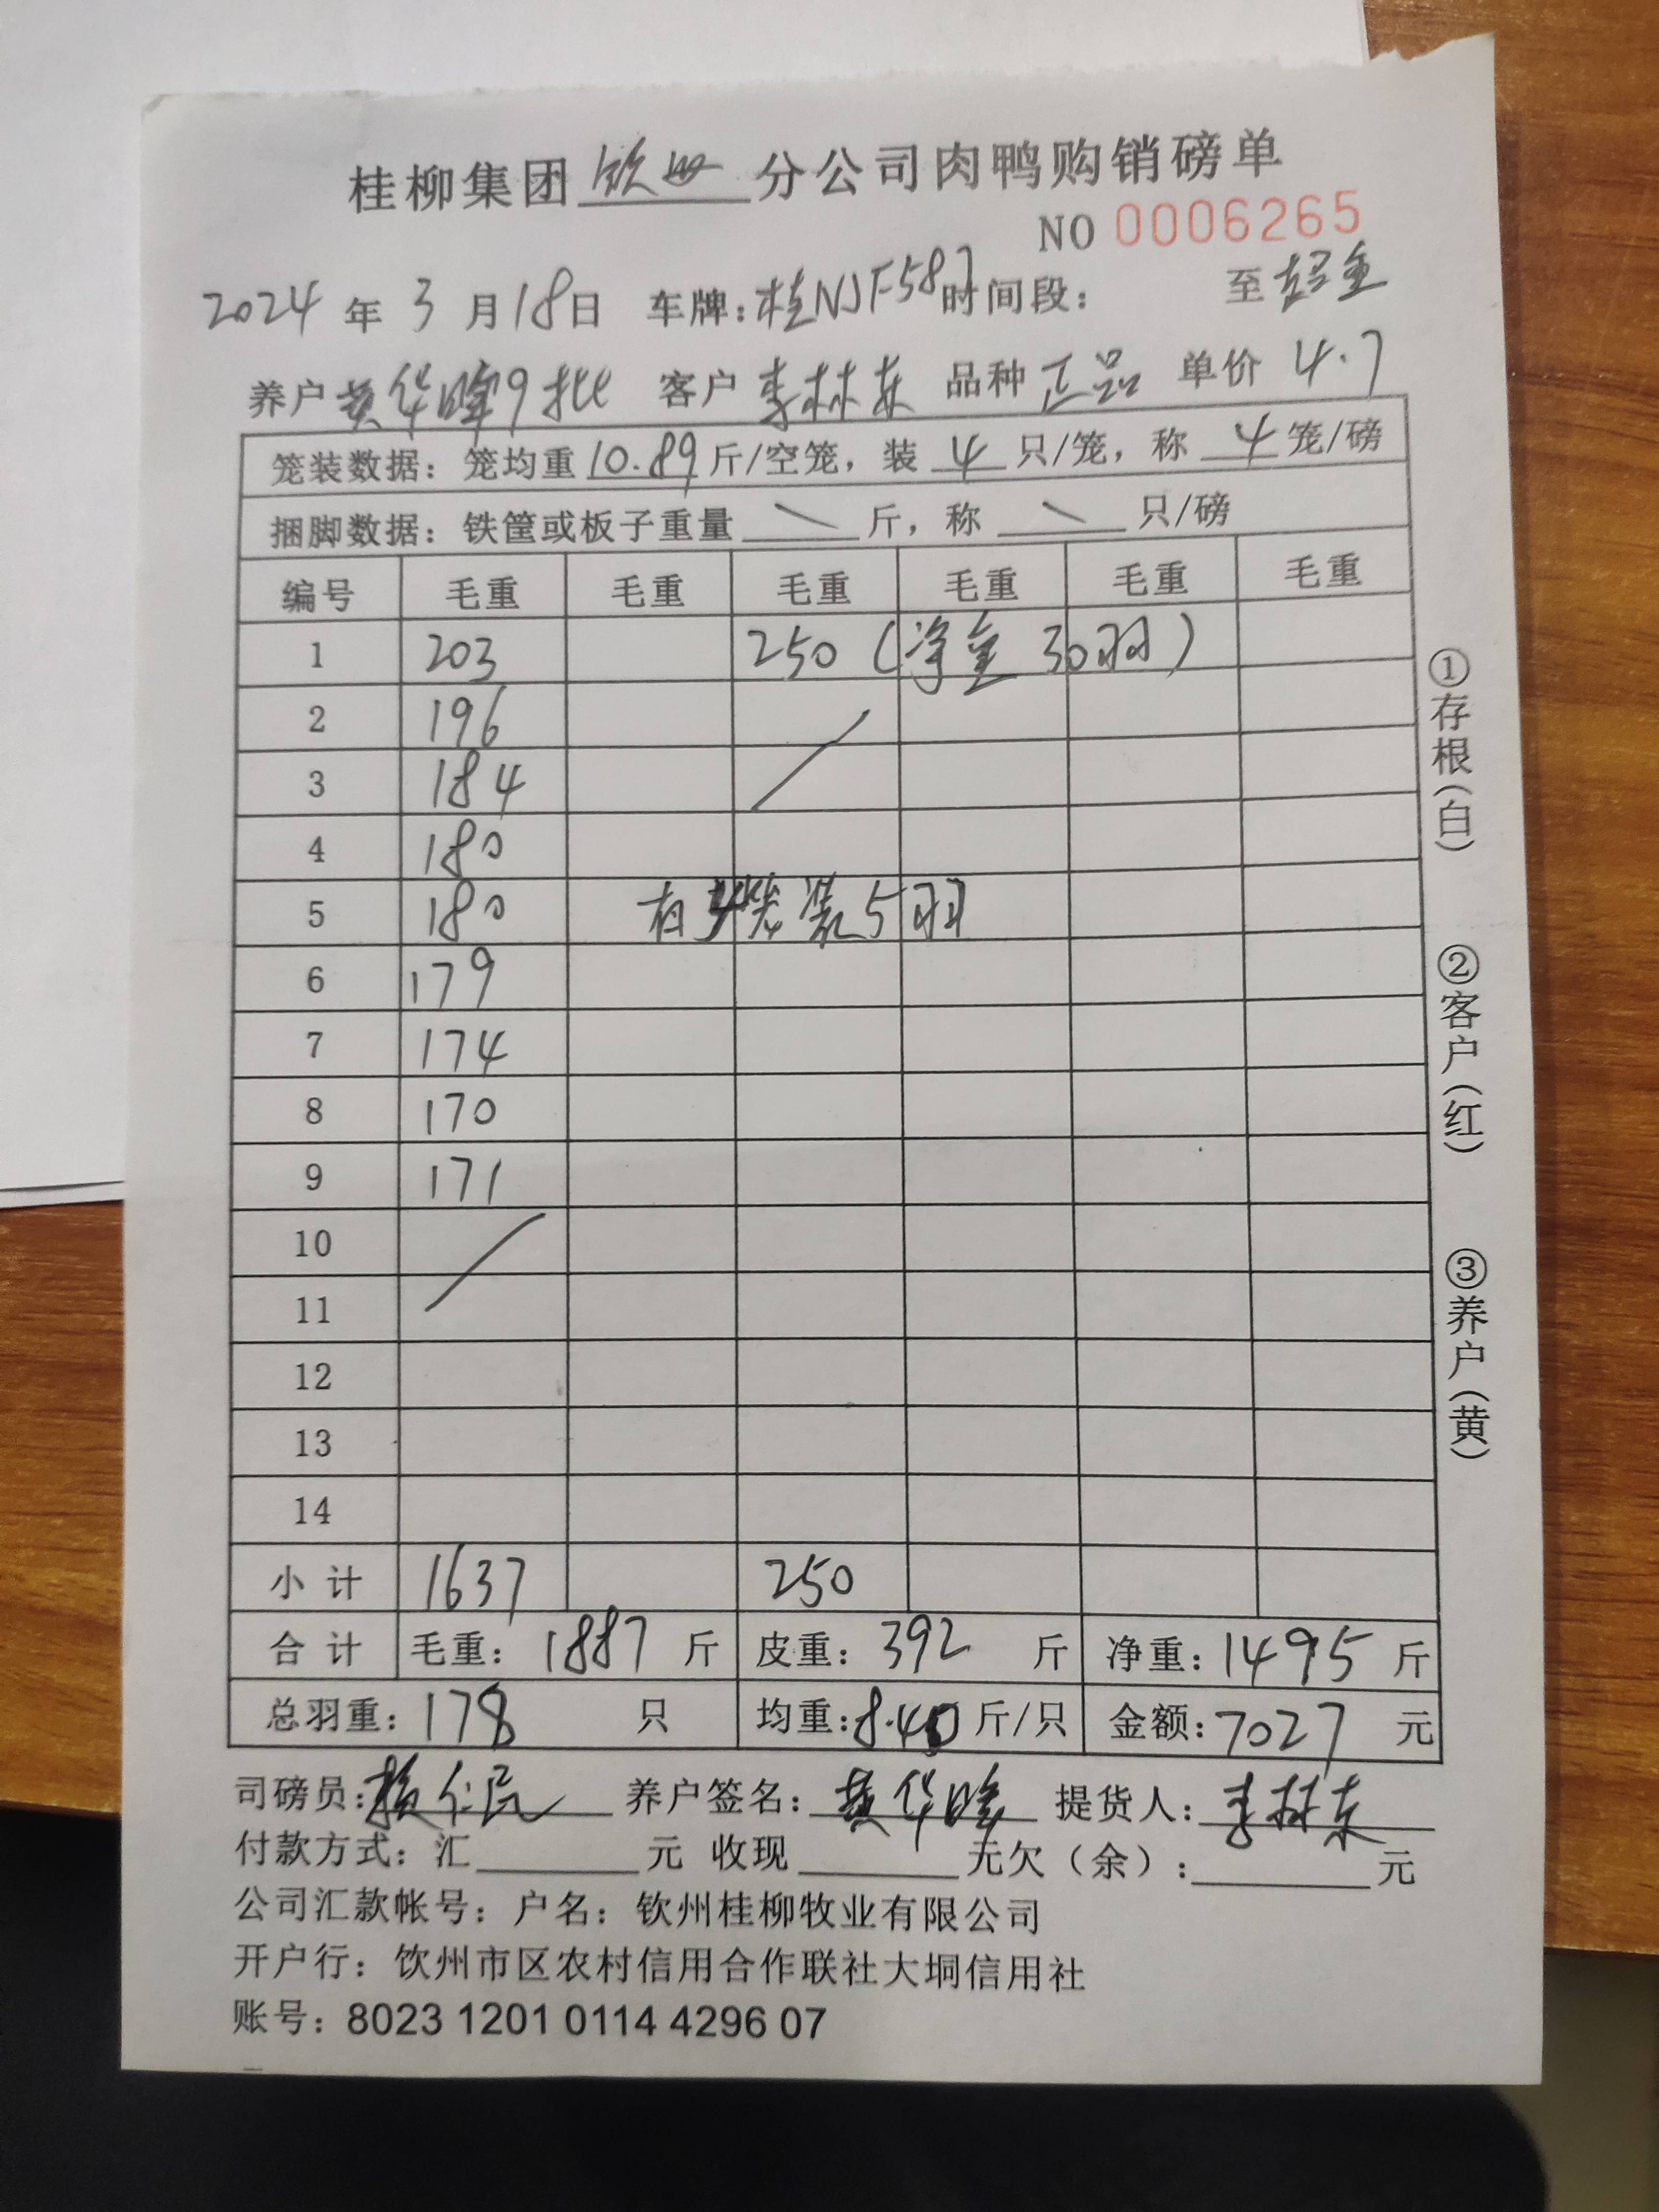 桂柳集团钦州分公司肉鸭购销磅单
NO 0006265
2024 年 3 月 18日 车牌:桂NJF587 时间段: 至
养户黄华峰9批 客户李林东 品种正品 单价 4.7
笼装数据: 笼均重10.89斤/空笼, 装 4 只/笼, 称 4 笼/磅
捆脚数据: 铁筐或板子重量 \ 斤, 称 \ 只/磅
编号 毛重 毛重 毛重 毛重 毛重 毛重
1 203 250 (净重 30羽)
2 196
3 184
4 180
5 180 有 笼装5羽
6 179
7 174
8 170
9 171
10
11
12
13
14
小计 1637 250
合计 毛重: 1887 斤 皮重: 392 斤 净重: 1495 斤
总羽重: 178 只 均重:8.40斤/只 金额: 7027 元
司磅员: 养户签名: 黄华峰 提货人: 李林东
付款方式: 汇 元 收现 元欠(余): 元
公司汇款帐号: 户名: 钦州桂柳牧业有限公司
开户行: 钦州市区农村信用合作联社大垌信用社
账号: 8023 1201 0114 4296 07
①存根(白)
②客户(红)
③养户(黄)